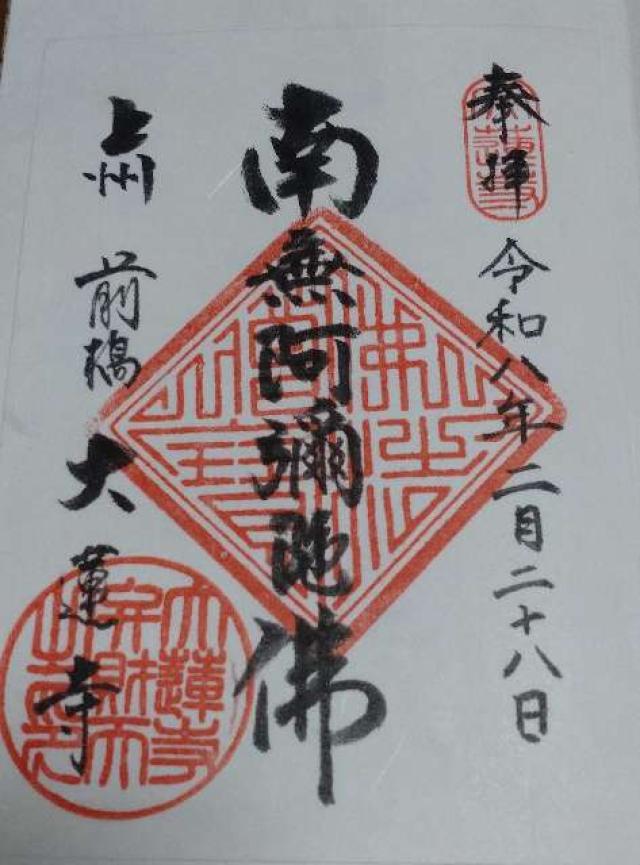 奉拝
令和八年二月二十八日
南無阿彌陀佛
上州 前橋 大蓮寺